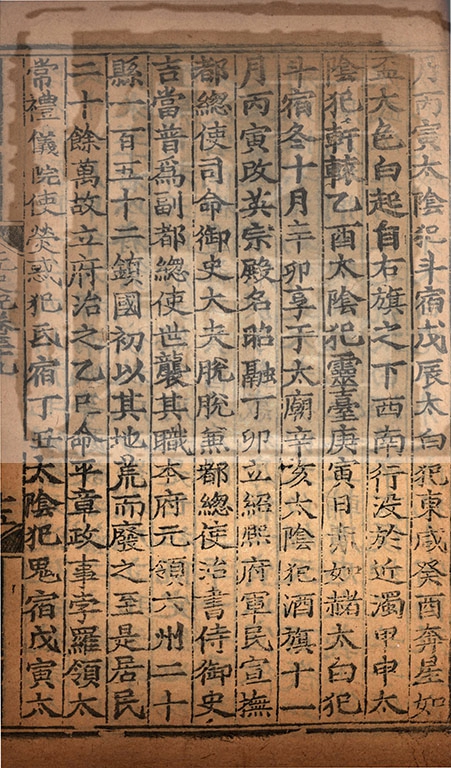 月丙寅太陰犯斗宿戊辰太白犯東咸癸酉奔星如
盃大色白起自右旗之下西南行没於近濁甲申太
陰犯軒轅乙酉太陰犯靈臺庚寅日赤如赭太白犯
斗宿冬十月辛卯享于太廟辛亥太陰犯酒旗十一
月丙寅改英宗殿名昭融丁卯立紹熙府軍民宣撫
都總使司命御史大夫脫脫兼都總使治書侍御史
吉當普爲副都總使世襲其職本府元領六州二十
縣一百五十二鎮國初以其地荒而廢之至是居民
二十餘萬故立府治之乙巳命平章政事孛羅領太
常禮儀院使熒惑犯氐宿丁丑太陰犯鬼宿戊寅太